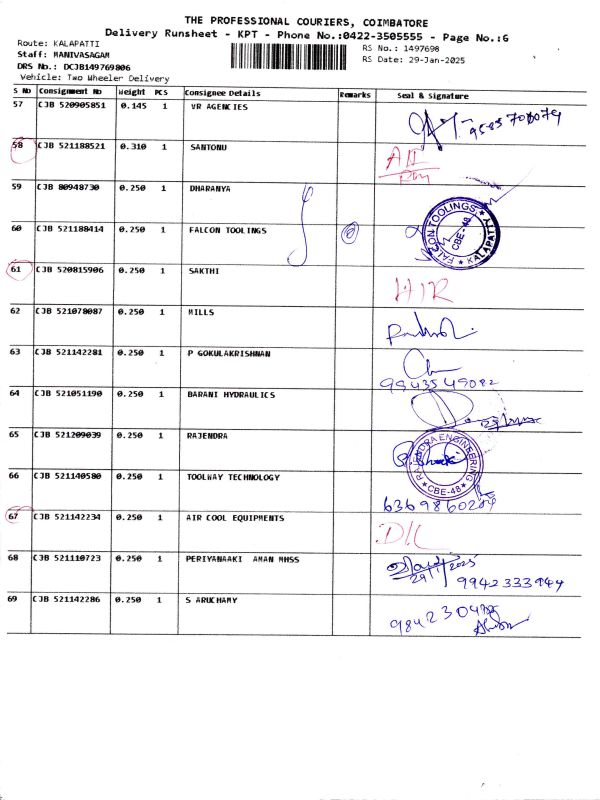 THE PROFESSIONAL COURIERS, COIMBATORE
Delivery Runsheet - KPT - Phone No.:0422-3505555 - Page No.:6
Route: KALAPATTI
RS No.: 1497698
Staff: MANIVASAGAM
RS Date: 29-Jan-2025
DRS No.: DCJB149769806
Vehicle: Two Wheeler Delivery
S No Consignment No Weight PCS Consignee Details Remarks Seal & Signature
57 CJB 520905851 0.145 1 VR AGENCIES
58 CJB 521188521 0.310 1 SANTONU
59 CJB 80948730 0.250 1 DHARANYA
60 CJB 521188414 0.250 1 FALCON TOOLINGS
FALCON TOOLINGS ★ KALAPATTI ★
CBE-48
61 CJB 520815906 0.250 1 SAKTHI
62 CJB 521078087 0.250 1 MILLS
63 CJB 521142281 0.250 1 P GOKULAKRISHNAN
64 CJB 521051190 0.250 1 BARANI HYDRAULICS
65 CJB 521209039 0.250 1 RAJENDRA
RAJENDRA ENGINEERING
★ CBE-48 ★
66 CJB 521140580 0.250 1 TOOLWAY TECHNOLOGY
67 CJB 521142234 0.250 1 AIR COOL EQUIPMENTS
D/L
68 CJB 521110723 0.250 1 PERIYANAAKI AMAN MHSS
29/1/2025
69 CJB 521142286 0.250 1 S ARUCHAMY